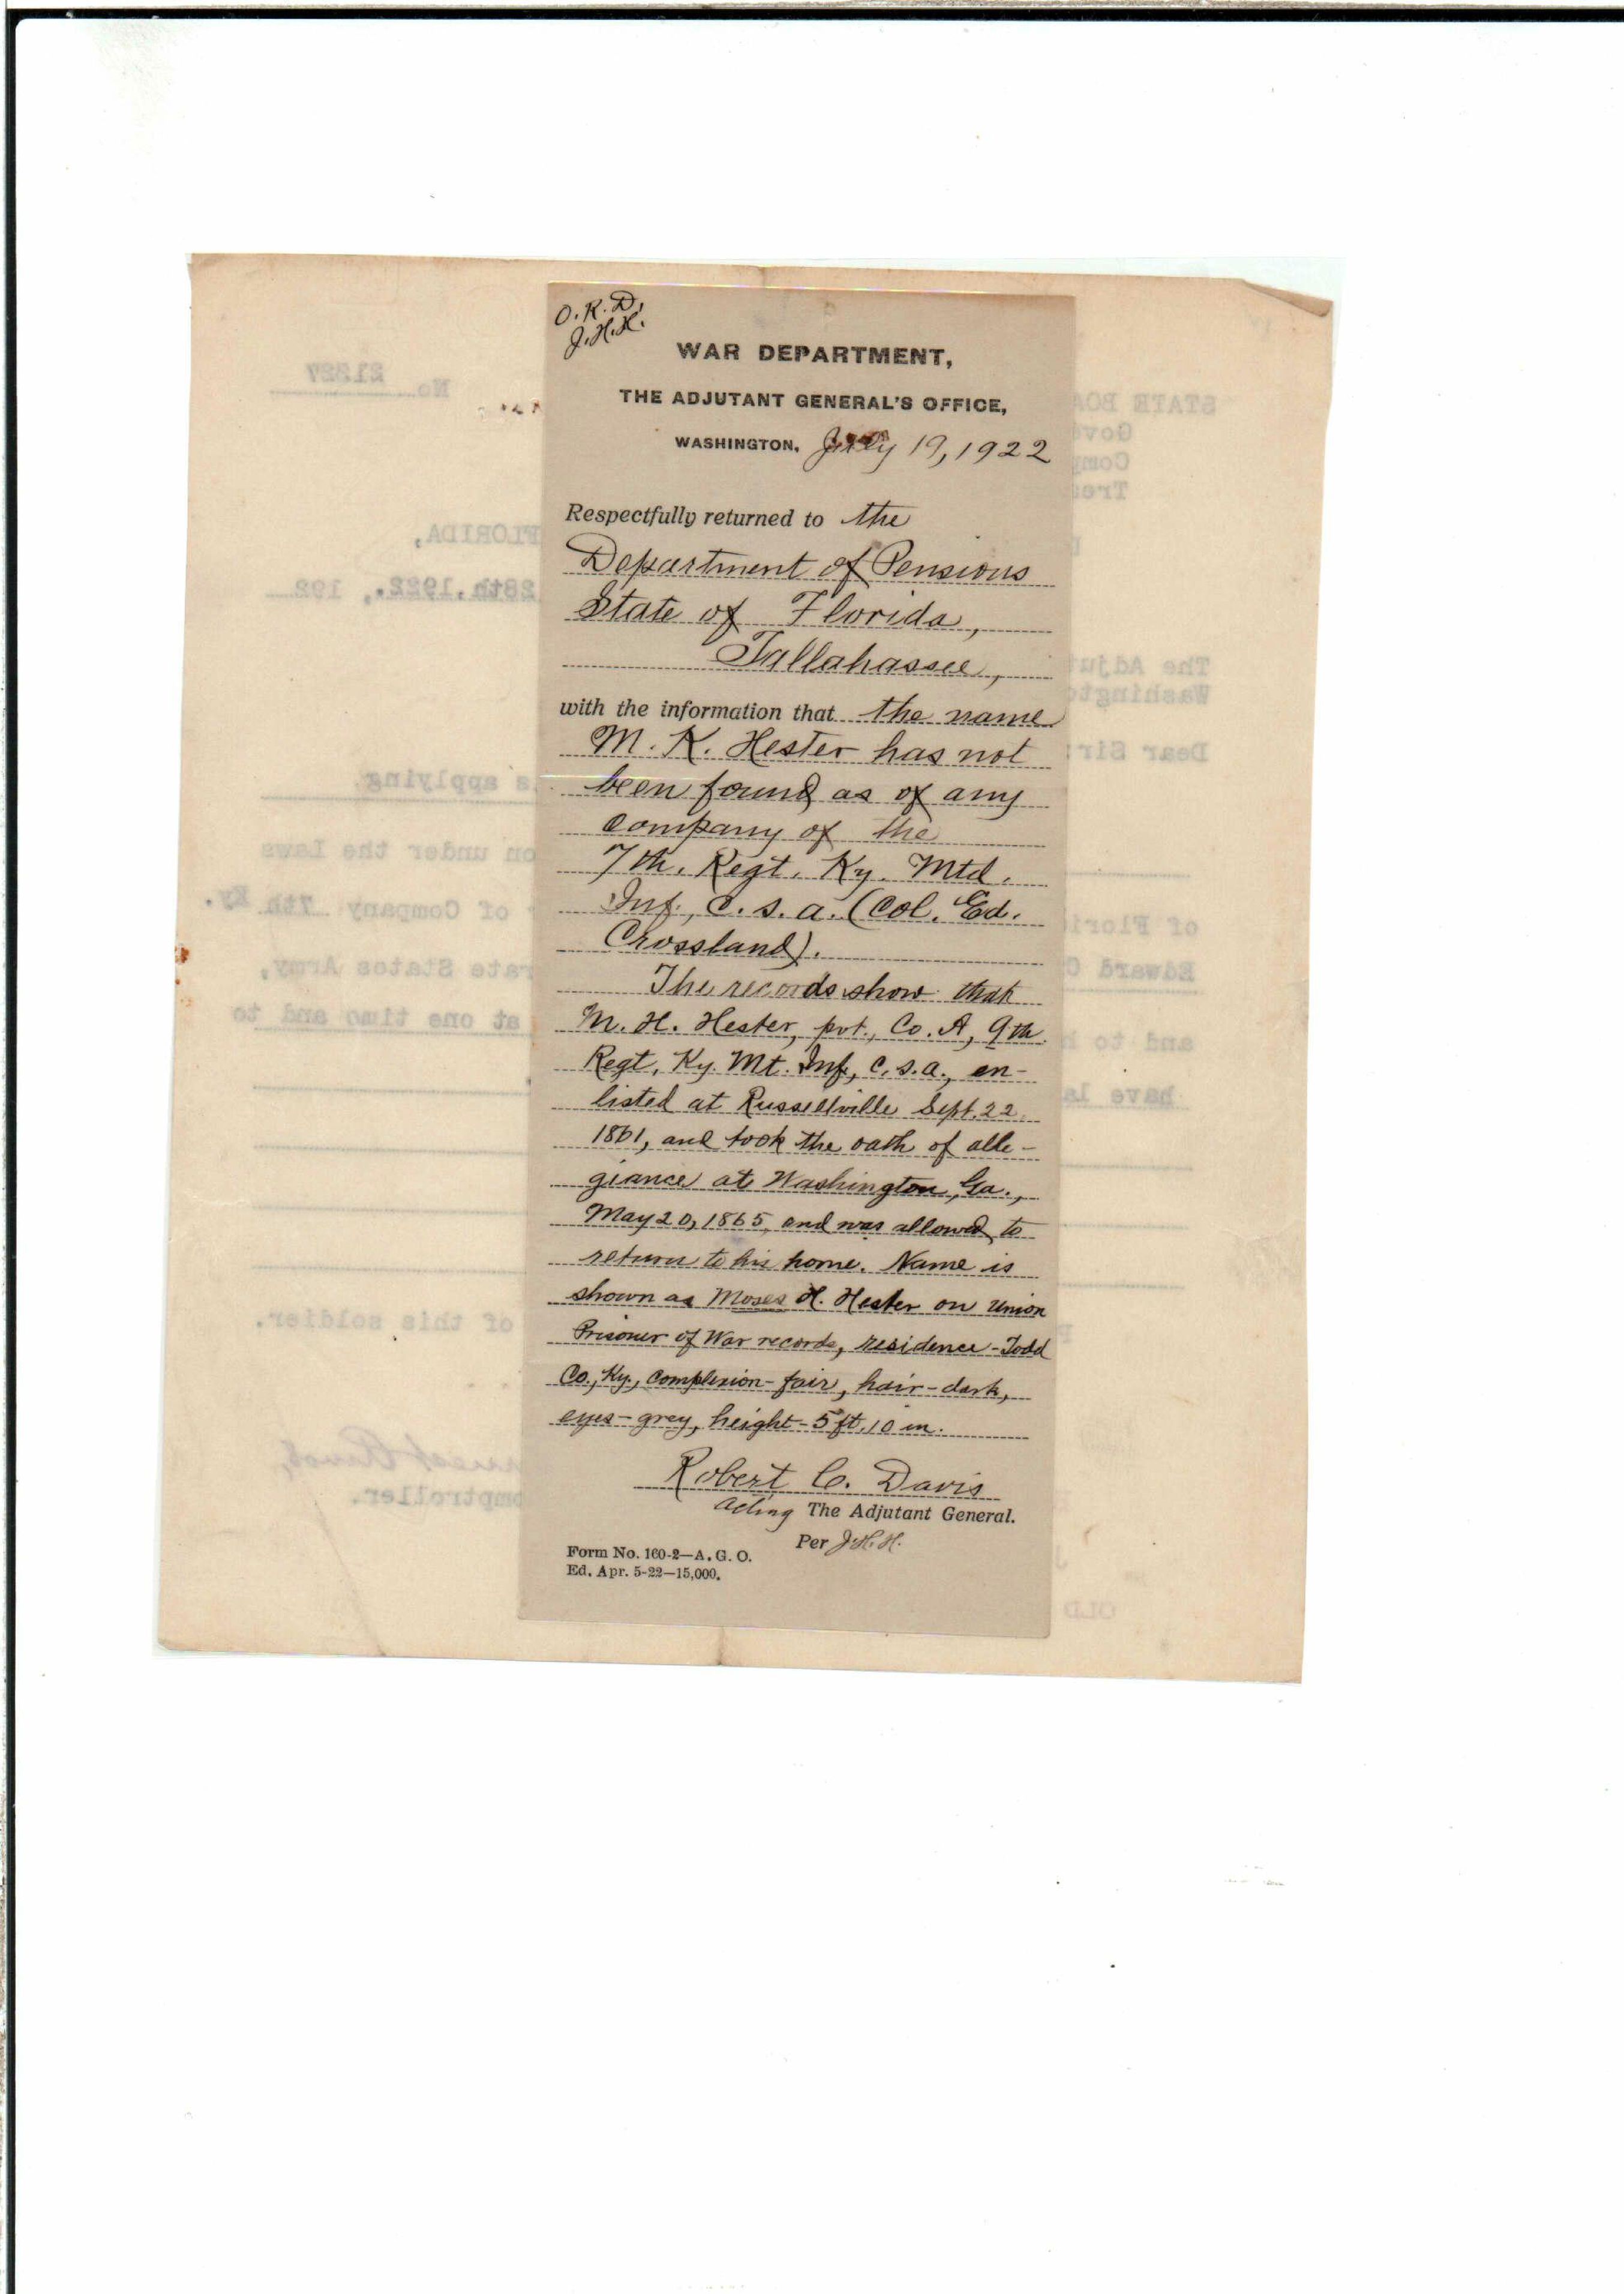 O.R.D.
J.H.H.
WAR DEPARTMENT,
THE ADJUTANT GENERAL'S OFFICE,
WASHINGTON, July 19, 1922
Respectfully returned to the
Department of Pensions
State of Florida,
Tallahassee,
with the information that the name
M. K. Hester has not
been found as of any
company of the
7th. Regt. Ky. Mtd.
Inf., C. S. A. (Col. Ed.
Crossland).
The records show that
M. H. Hester, pvt., Co. A, 9th
Regt, Ky. Mt. Inf., C. S. A., en-
listed at Russellville Sept. 22
1861, and took the oath of alle-
giance at Washington, Ga.,
May 20, 1865, and was allowed to
return to his home. Name is
shown as Moses H. Hester on Union
Prisoner of War records, residence - Todd
Co., Ky., Complexion - fair, hair - dark,
eyes - grey, height - 5 ft. 10 in.
Robert C. Davis
Acting The Adjutant General.
Per J.H.H.
Form No. 160-2—A. G. O.
Ed. Apr. 5-22—15,000.
No. 21327
STATE BOA
Gove
Comp
Trea
FLORIDA,
28th, 1922., 192
The Adju
Washingto
Dear Sir:
s applying
on under the laws
of Flori
of Company 7th Ky.
Edward C
rate States Army,
and to h
at one time and to
have la
of this soldier.
mptroller.
OLD